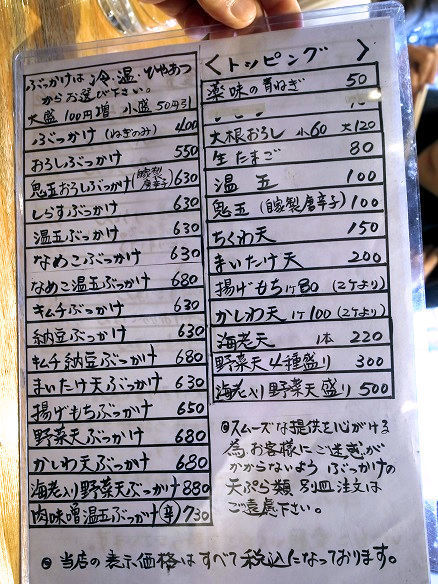 ぶっかけは冷・温・ひやあつ
からお選び下さい。
大盛100円増 小盛50円引
ぶっかけ (ねぎのみ) 400
おろしぶっかけ 550
鬼玉おろしぶっかけ(自家製唐辛子) 630
しらすぶっかけ 630
温玉ぶっかけ 630
なめこぶっかけ 630
なめこ温玉ぶっかけ 680
キムチぶっかけ 630
納豆ぶっかけ 630
キムチ納豆ぶっかけ 680
まいたけ天ぶっかけ 630
揚げもちぶっかけ 650
野菜天ぶっかけ 680
かしわ天ぶっかけ 680
海老入り野菜天ぶっかけ 880
肉味噌温玉ぶっかけ(辛) 730
<トッピング>
薬味の青ねぎ 50
大根おろし 小60 大120
生たまご 80
温玉 100
鬼玉(自家製唐辛子) 100
ちくわ天 150
まいたけ天 200
揚げもち1ケ80 (2ケより)
かしわ天1ケ100 (2ケより)
海老天 1本 220
野菜天4種盛り 300
海老入り野菜天盛り 500
◎スムーズな提供を心がける
為、お客様にご迷惑が
かからないよう ぶっかけの
天ぷら類 別皿注文は
ご遠慮下さい。
◎ 当店の表示価格はすべて税込になっております。